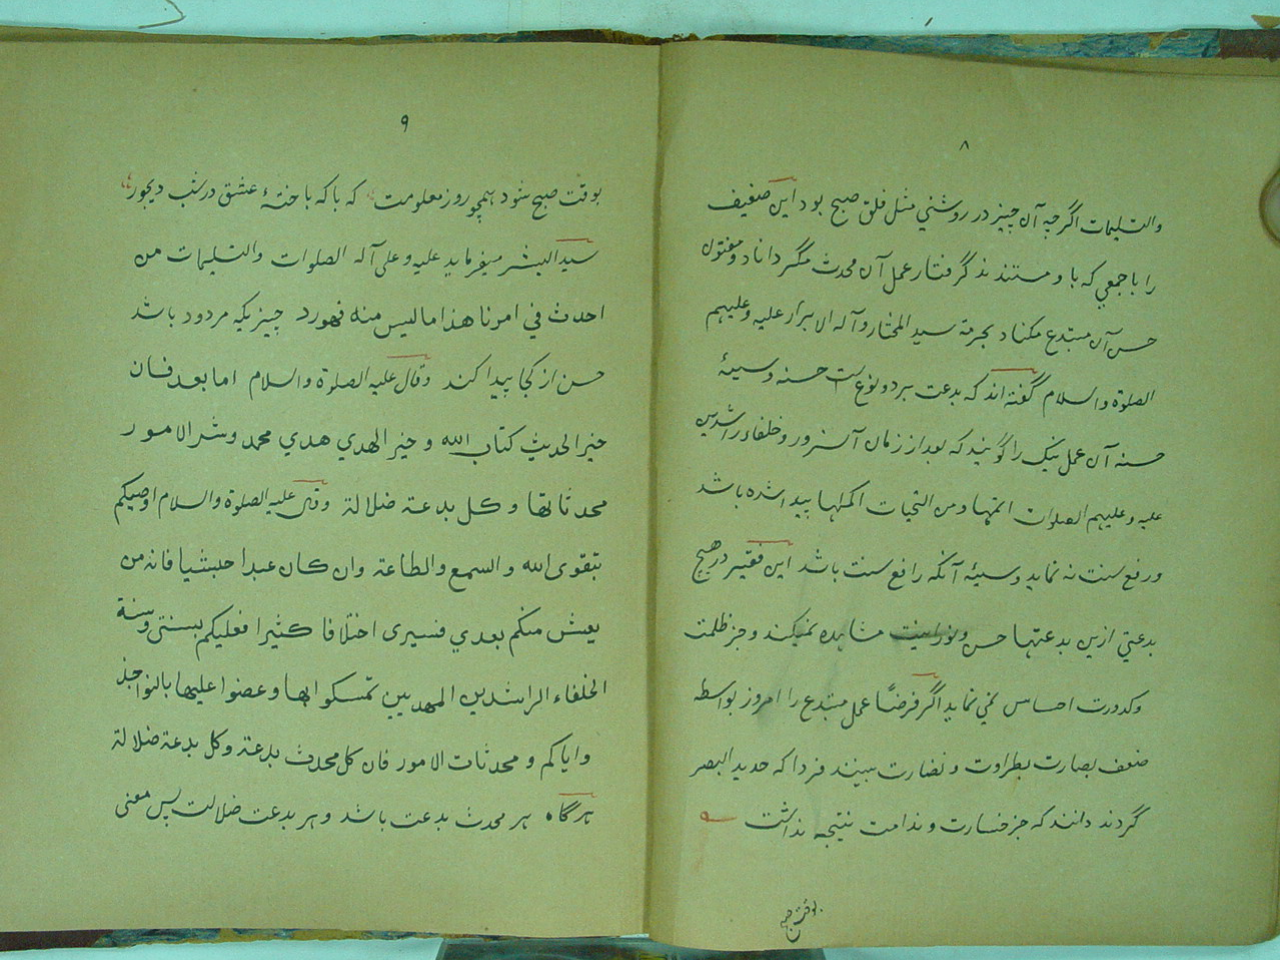 ۸
والتسلیمات اگرچه آن چیز در روشنی مثل فلق صبح بود این ضعیف
را با جمعی که با و مستندند گرفتار عمل آن محدث مگرداناد و مفتون
حسن آن مبتدع مکناد بحرمة سید المختار و آله الابرار علیه و علیهم
الصلوة والسلام گفته اند که بدعت بر دو نوع است حسنه و سیئه
حسنه آن عمل نیک را گویند که بعد از زمان آنسرور و خلفاء راشدین
علیه و علیهم الصلوات اتمها و من التحیات اکملها پیدا شده باشد
و رفع سنت نه نماید و سیئه آنکه رافع سنت باشد این فقیر در هیچ
بدعتی ازین بدعتها حسن و نورانیت مشاهده نمیکند و جز ظلمت
و کدورت احساس نمی نماید اگر فرضًا عمل مبتدع را امروز بواسطه
ضعف بصارت بطراوت و نضارت ببینند فردا که حدید البصر
گردند دانند که جز خسارت و ندامت نتیجه نداشت
بوقت صبح
۹
بوقت صبح شود همچو روز معلومت که با که باختهٔ عشق در شب دیجور
سید البشر میفرماید علیه و علی آله الصلوات والتسلیمات من
احدث في امرنا هذا ما لیس منه فهو رد چیزیکه مردود باشد
حسن از کجا پیدا کند وقال علیه الصلوة والسلام اما بعد فان
خیر الحدیث کتاب الله و خیر الهدي هدي محمد و شر الامور
محدثاتها و کل بدعة ضلالة وقال علیه الصلوة والسلام اوصیکم
بتقوی الله والسمع والطاعة وان کان عبدا حبشیا فانه من
یعش منکم بعدي فسیری اختلافا کثیرا فعلیکم بسنتی وسنة
الخلفاء الراشدین المهدیین تمسکوا بها وعضوا علیها بالنواجذ
وایاکم و محدثات الامور فان کل محدث بدعة وکل بدعة ضلالة
هرگاه هر محدث بدعت باشد و هر بدعت ضلالت پس معنی